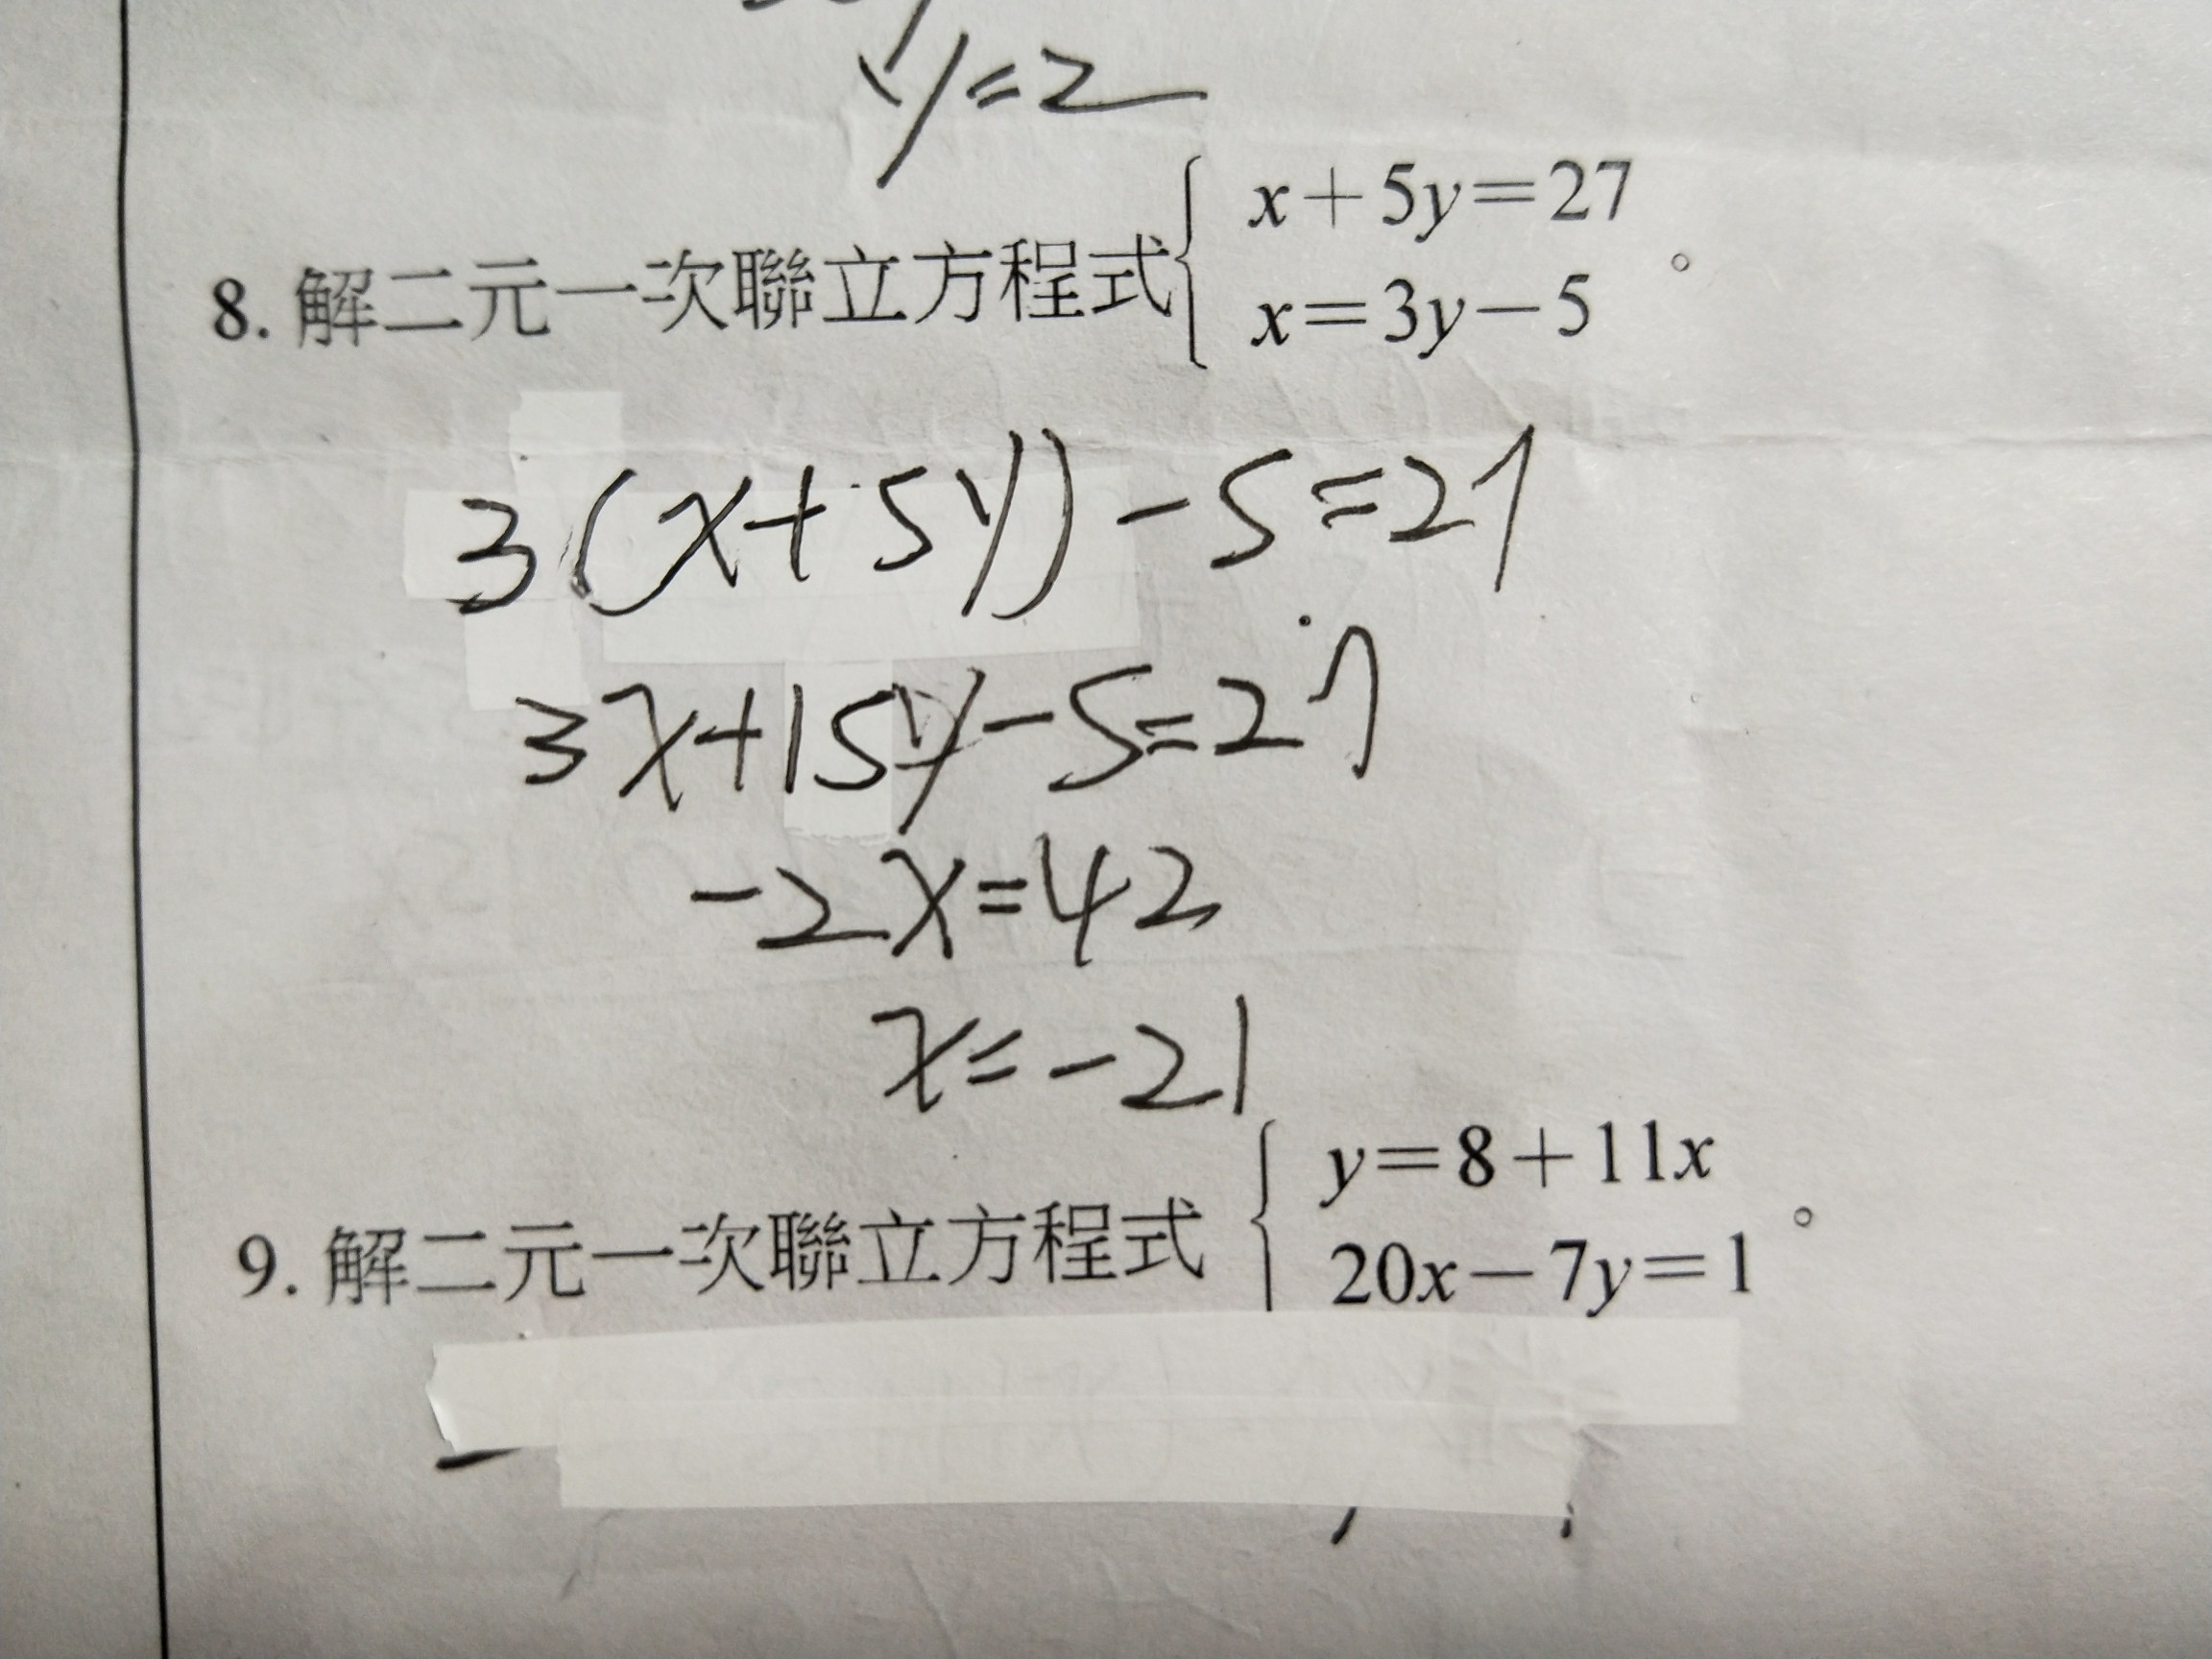 y=2
8. 解二元一次聯立方程式{ x+5y=27
x=3y-5 。
3(x+5y)-5=27
3x+15y-5=27
-2x=42
x=-21
9. 解二元一次聯立方程式{ y=8+11x
20x-7y=1 。